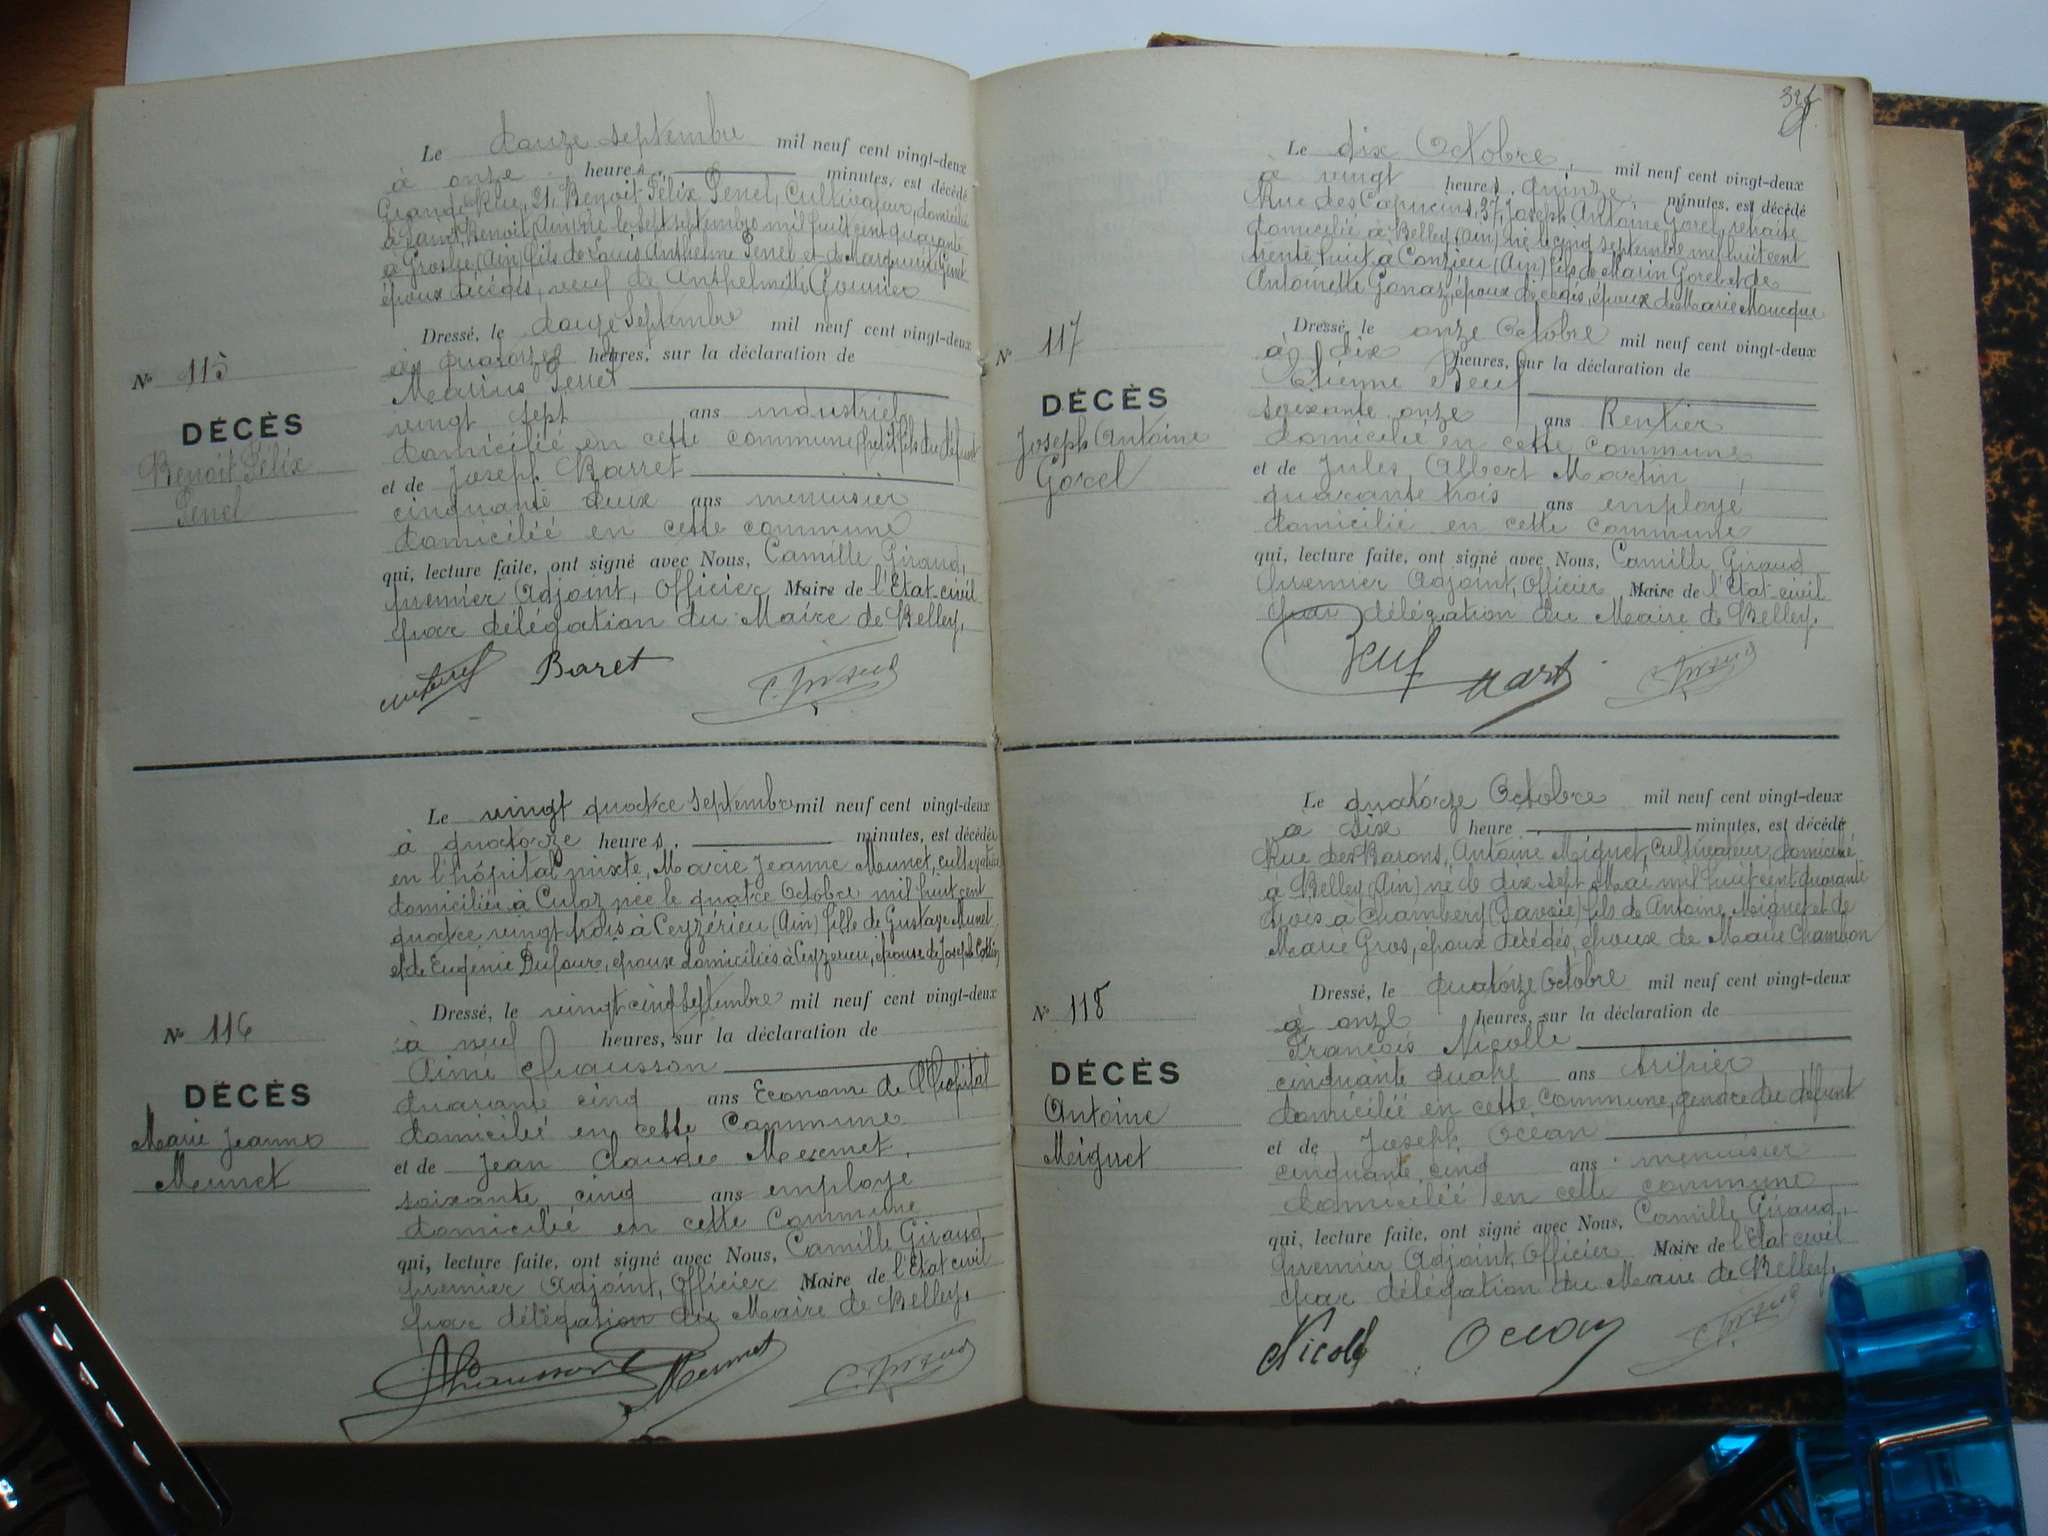 Le douze septembre mil neuf cent vingt-deux
à onze heures, minutes, est décédé
Grande Rue, 21, Benoit Félix Penel, Cultivateur, domicilié
à Saint Benoit (Ain) né le sept septembre mil huit cent quarante
à Groslée (Ain) fils de Louis Anthelme Penel et de Marguerite
époux décédés, veuf de Anthelmette
Dressé, le douze Septembre mil neuf cent vingt-deux
à quatorze heures, sur la déclaration de
Marius
vingt sept ans industriel
domicilié en cette commune petit fils du défunt
et de Joseph Barret
cinquante deux ans menuisier
domicilié en cette commune
qui, lecture faite, ont signé avec Nous, Camille Giraud,
premier Adjoint, Officier Maire de l'Etat-civil
par délégation du Maire de Belley.
Baret C. Giraud
N° 115
DÉCÈS
Benoit Félix
Penel
Le vingt quatre septembre mil neuf cent vingt-deux
à quatorze heures, minutes, est décédée
en l'hôpital mixte, Marie Jeanne Meunet, cultivatrice
domiciliée à Culoz née le quatre Octobre mil huit cent
quatre vingt trois à Ceyzérieu (Ain) fille de Gustave Munet
et de Eugénie Dufour, époux domiciliés à Ceyzerieu, épouse de Joseph
Dressé, le vingt cinq septembre mil neuf cent vingt-deux
à neuf heures, sur la déclaration de
Aimé Chausson
quarante cinq ans Econome de l'hôpital
domicilié en cette Commune
et de Jean Claude Mermet,
soixante cinq ans employé
domicilié en cette Commune
qui, lecture faite, ont signé avec Nous, Camille Giraud
premier Adjoint, Officier Maire de l'Etat civil
par délégation du Maire de Belley.
Chausson Mermet C. Giraud
N° 116
DÉCÈS
Marie Jeanne
Meunet
Le dix Octobre, mil neuf cent vingt-deux
à vingt heures, quinze minutes, est décédé
Rue des Capucins, 37, Joseph Antoine Gorel, retraité
domicilié à Belley (Ain) né le cinq septembre mil huit cent
trente huit à Conzieu (Ain) fils de Marin Gorel et de
Antoinette Gonaz, époux décédés, époux de Marie Moucque
Dressé, le onze Octobre mil neuf cent vingt-deux
à dix heures, sur la déclaration de
Etienne Beuf
soixante onze ans Rentier
domicilié en cette commune
et de Jules Albert Martin,
quarante trois ans employé
domicilié en cette commune
qui, lecture faite, ont signé avec Nous, Camille Giraud
premier Adjoint, Officier Maire de l'Etat-civil
par délégation du Maire de Belley.
Beuf Marti C. Giraud
N° 117
DÉCÈS
Joseph Antoine
Gorel
Le quatorze Octobre mil neuf cent vingt-deux
à dix heure minutes, est décédé
Rue des Barons, Antoine Miguet, cultivateur, domicilié
à Belley (Ain) né le dix sept Mai mil huit cent quarante
trois à Chambéry (Savoie) fils de Antoine Miguet et de
Marie Gros, époux décédés, époux de Marie Chambon
Dressé, le quatorze Octobre mil neuf cent vingt-deux
à onze heures, sur la déclaration de
François Nicolle
cinquante quatre ans
domicilié en cette commune, gendre du défunt
et de Joseph Ocean
cinquante cinq ans menuisier
domicilié en cette commune
qui, lecture faite, ont signé avec Nous, Camille Giraud,
premier Adjoint, Officier Maire de l'Etat civil
par délégation du Maire de Belley.
Nicole C. Giraud
N° 118
DÉCÈS
Antoine
Miguet